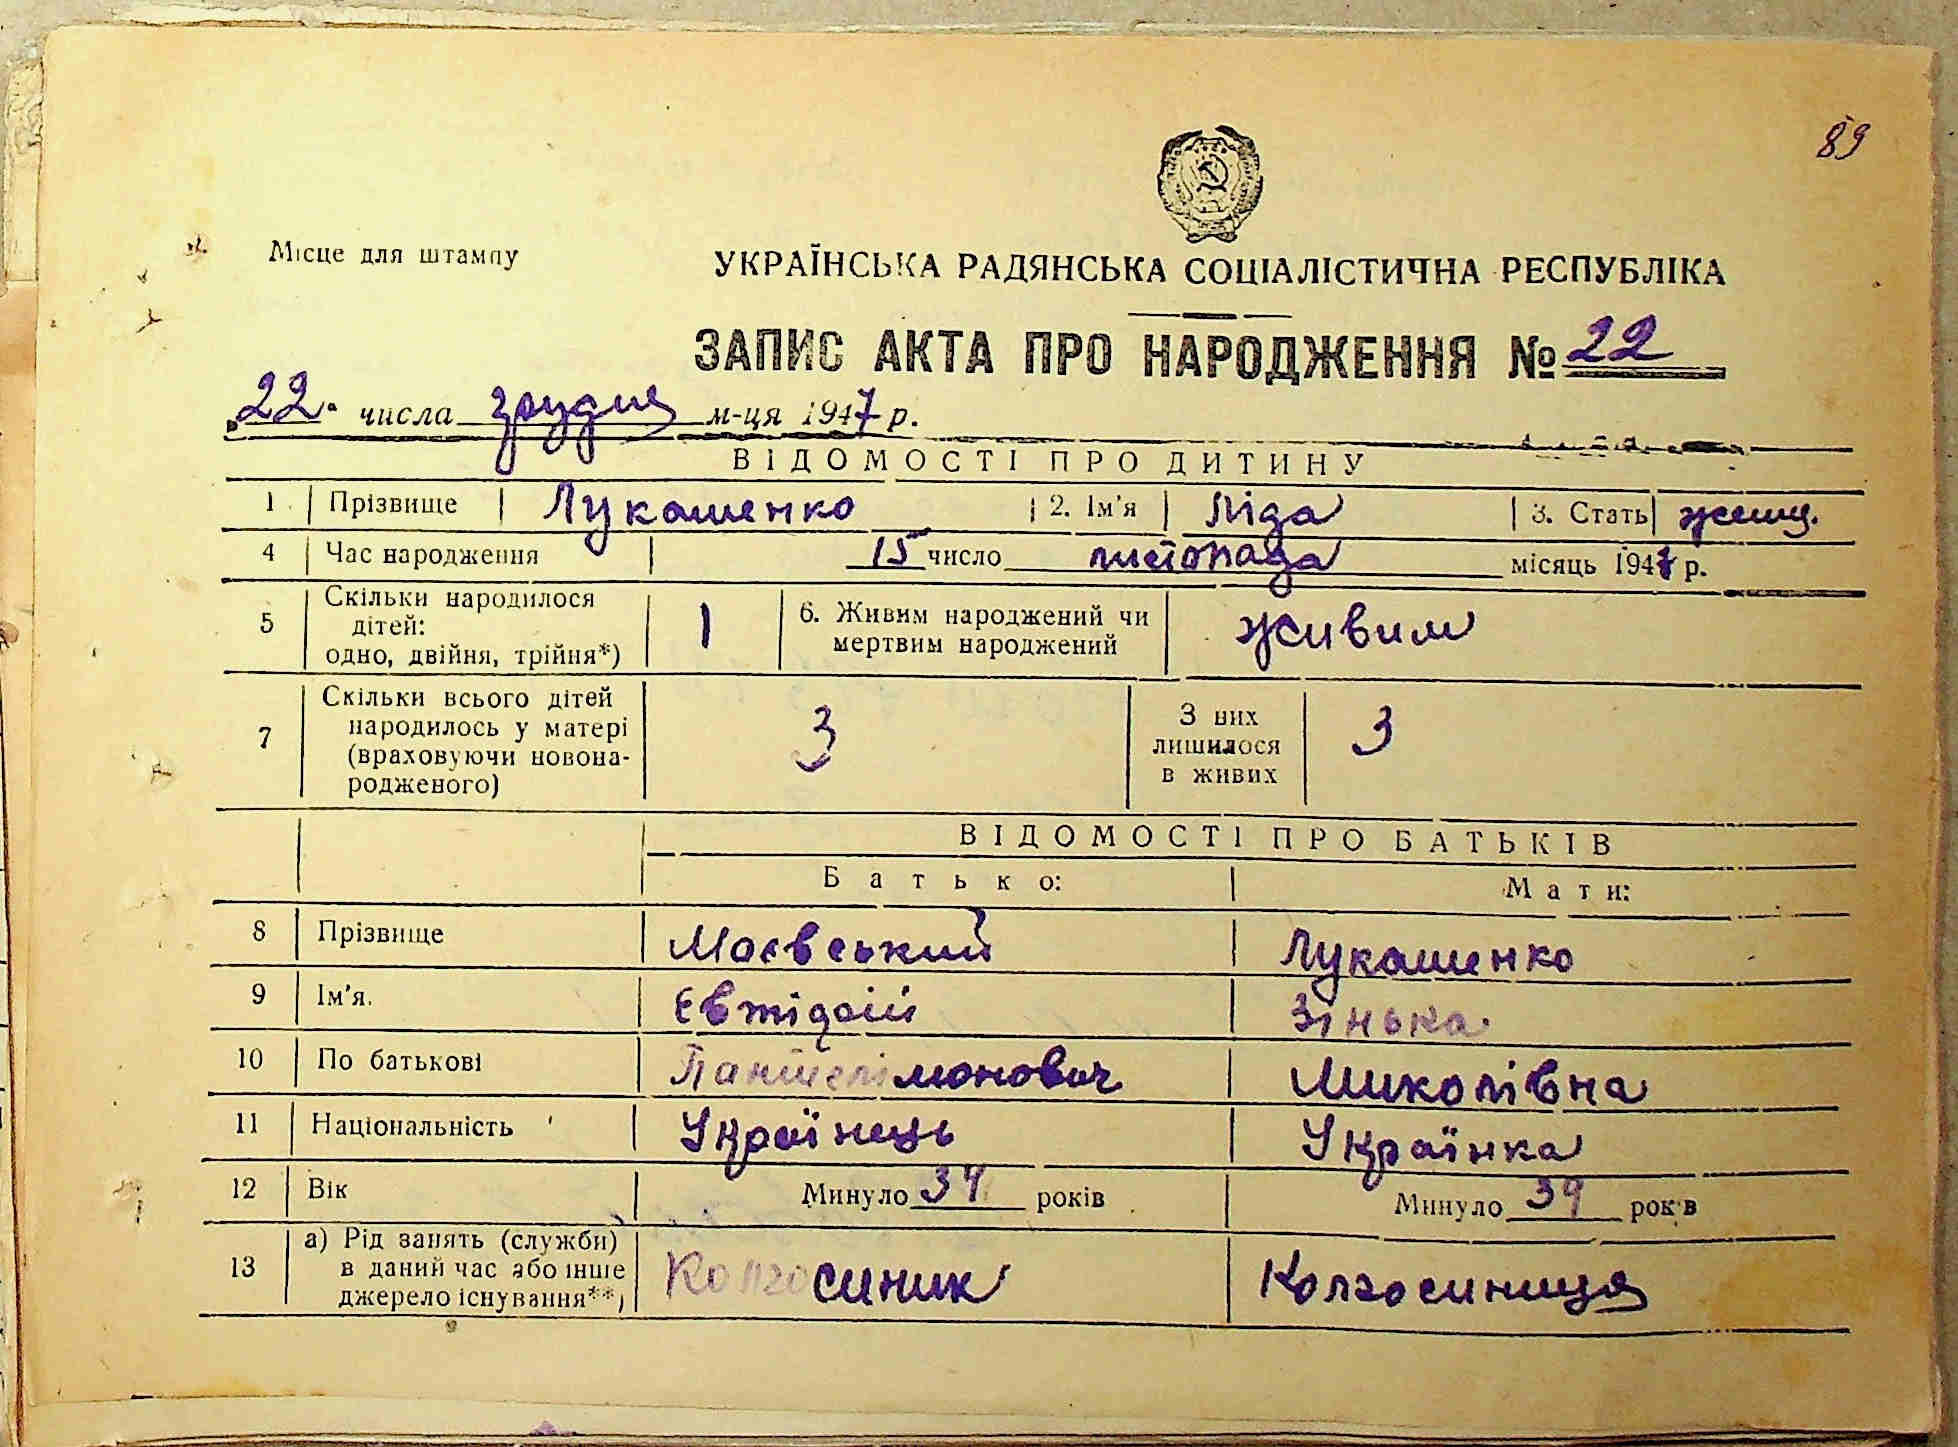 89
Місце для штампу
УКРАЇНСЬКА РАДЯНСЬКА СОЦІАЛІСТИЧНА РЕСПУБЛІКА
ЗАПИС АКТА ПРО НАРОДЖЕННЯ № 22
22 числа грудня м-ця 1947 р.
ВІДОМОСТІ ПРО ДИТИНУ
1 Прізвище Лукашенко 2. Ім'я Ліда 3. Стать женщ.
4 Час народження 15 число листопада місяць 1947 р.
5 Скільки народилося дітей: одно, двійня, трійня*) 1 6. Живим народжений чи мертвим народжений живим
7 Скільки всього дітей народилось у матері (враховуючи новонародженого) 3 З них лишилося в живих 3
ВІДОМОСТІ ПРО БАТЬКІВ
Батько: Мати:
8 Прізвище Маєвський Лукашенко
9 Ім'я. Зінька
10 По батькові Пантелімонович Миколівна
11 Національність Українець Українка
12 Вік Минуло років Минуло 39 років
13 а) Рід занять (служби) в даний час або інше джерело існування**) Колгосиник Колгосиниця